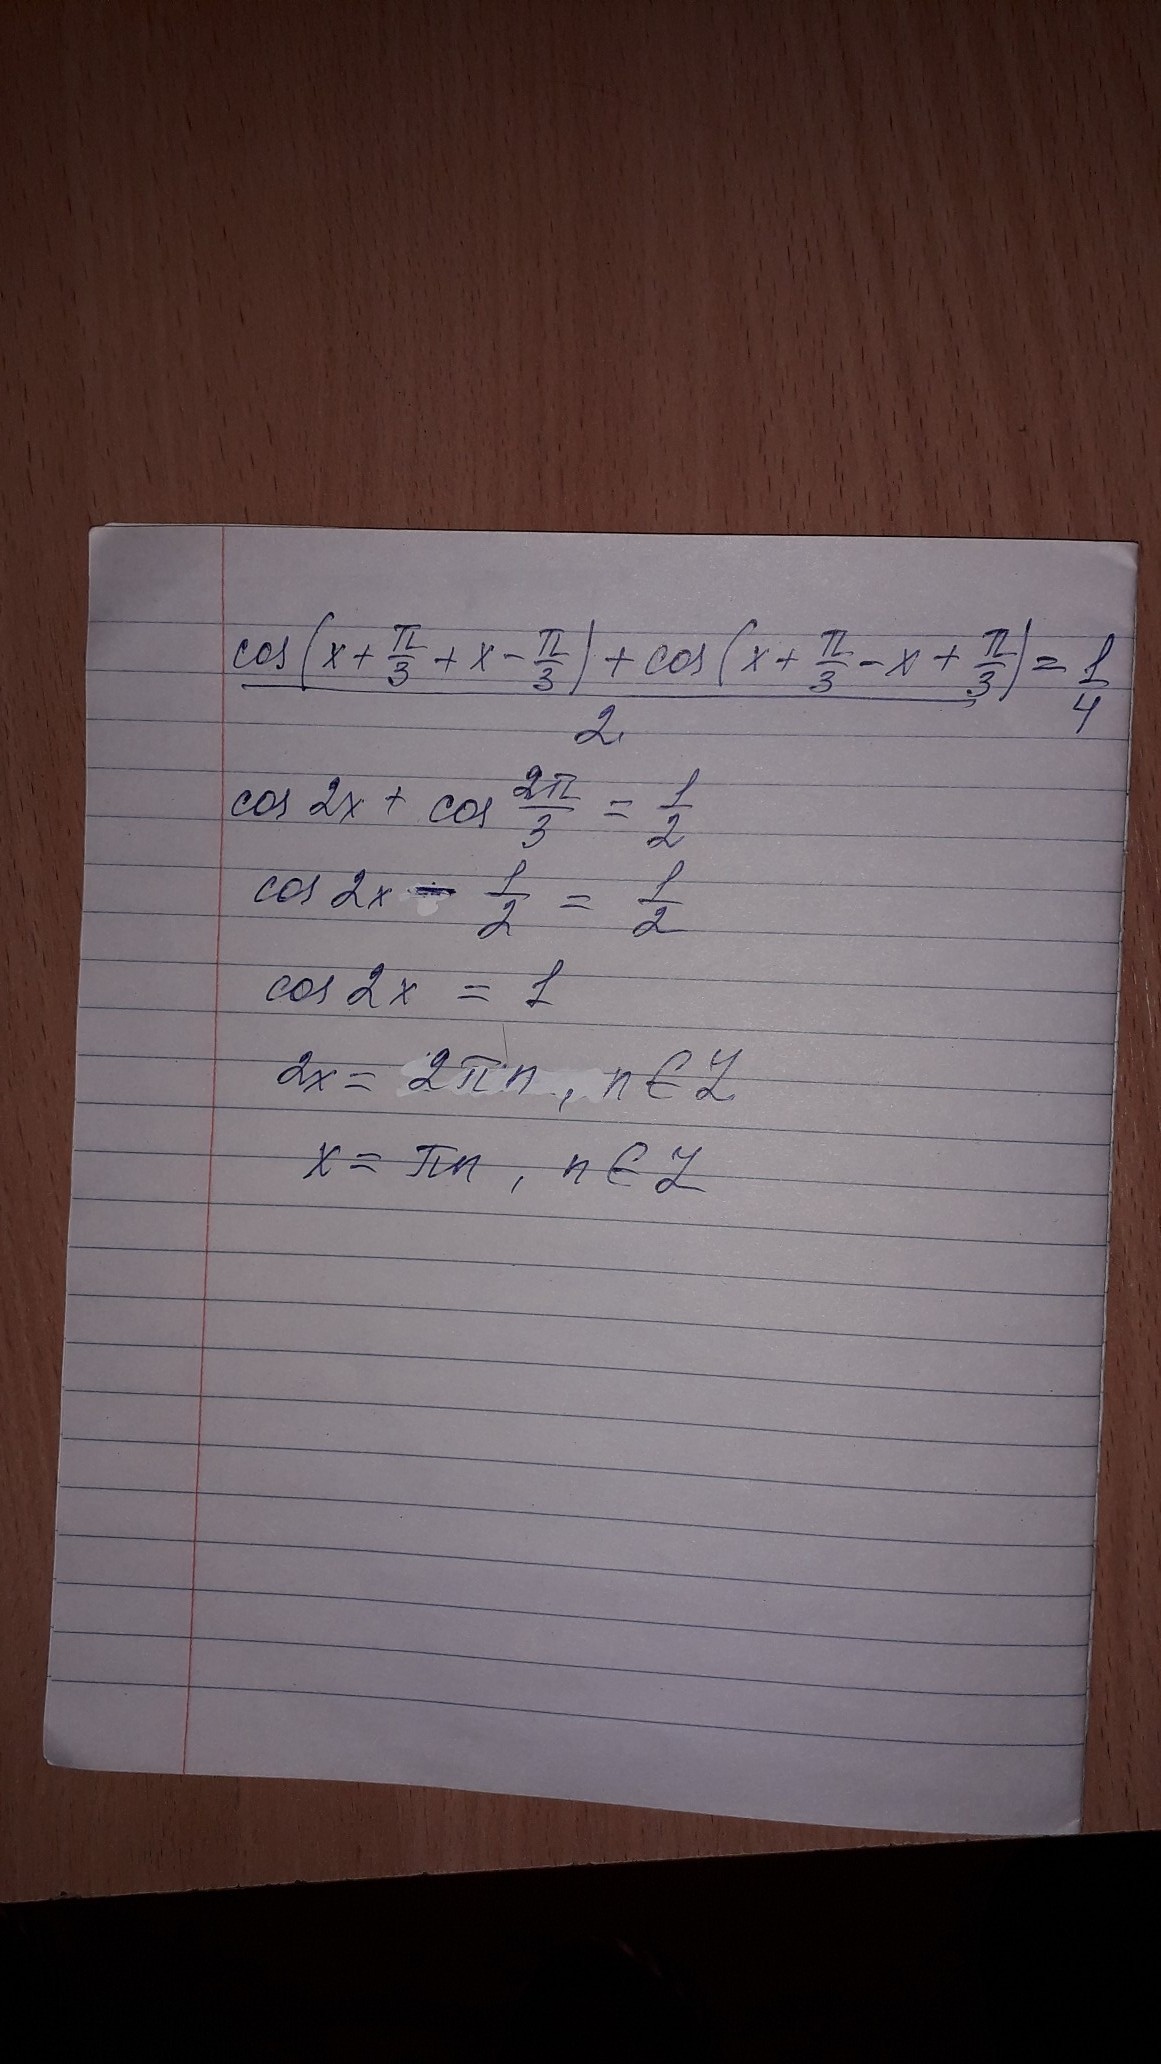 cos(x+π/3+x-π/3)+cos(x+π/3-x+π/3)/2=1/4
cos 2x + cos 2π/3 = 1/2
cos 2x - 1/2 = 1/2
cos 2x = 1
2x = 2πn, n∈Z
x = πn, n∈Z